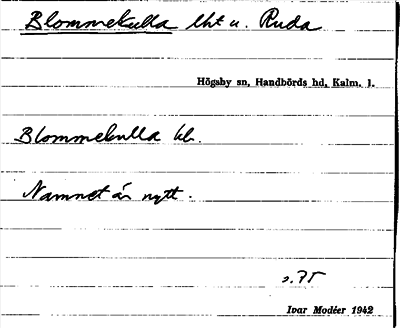 Blommekulla lht u. Ruda
Högsby sn, Handbörds hd, Kalm. l.
Blommekulla kl.
Namnet är nytt.
s. 75
Ivar Modéer 1942